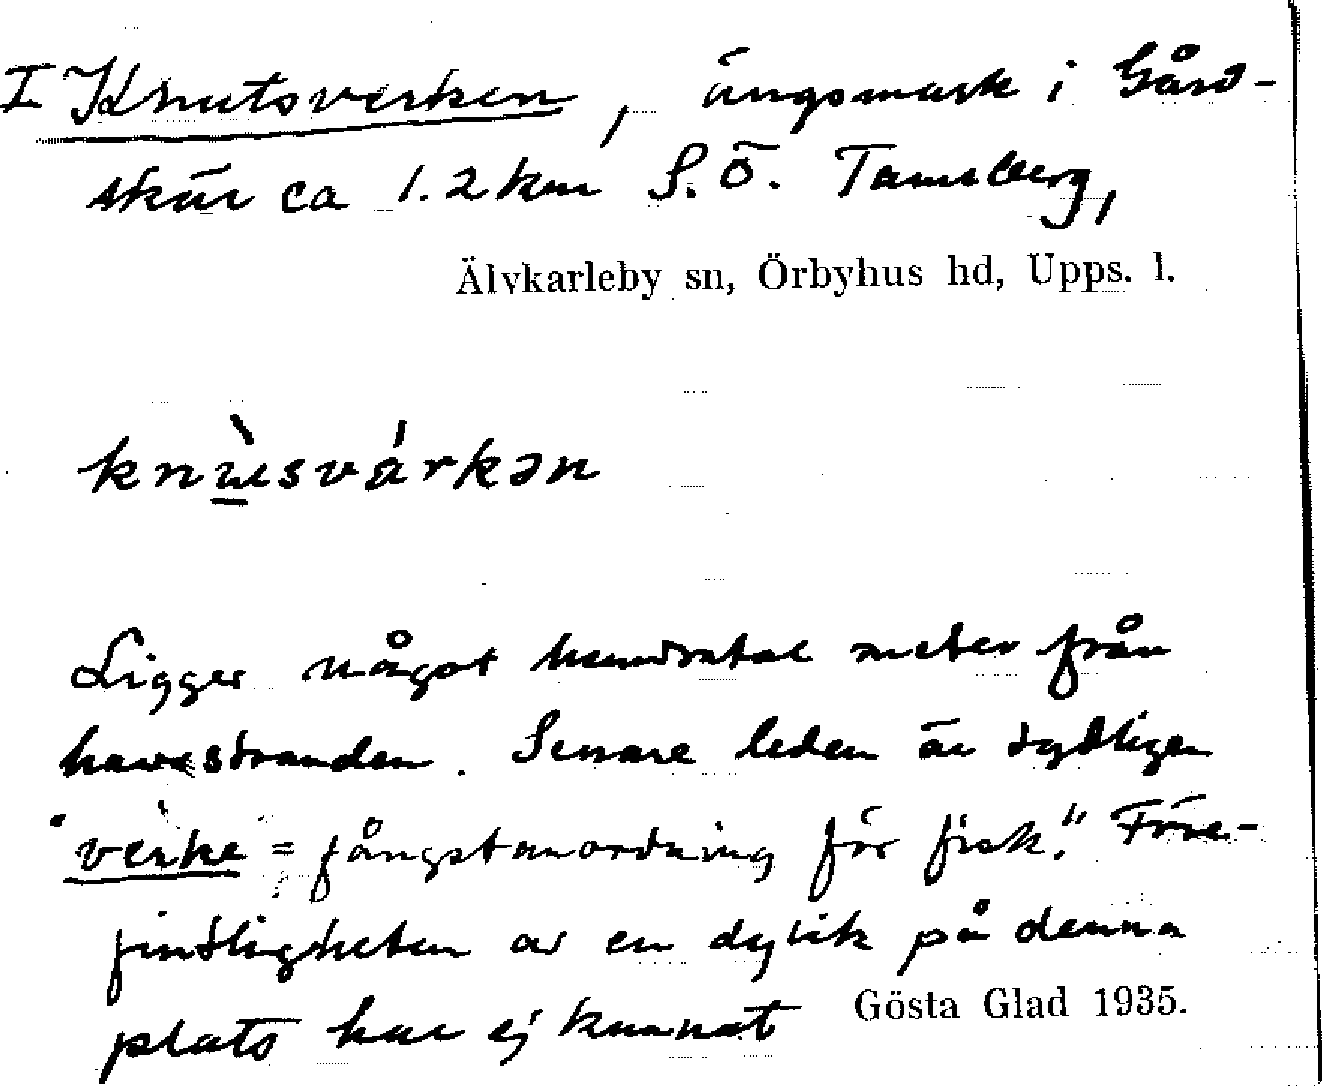 I Knutsverken, ängsmark i Gård-
skär ca 1.2 km S.Ö. Tamsberg,
Älvkarleby sn, Örbyhus hd, Upps. l.
knùsvárkən
Ligger något hundratal meter från
havsstranden. Senare leden är tydligen
"verke = fångstanordning för fisk." Före-
fintligheten av en dylik på denna
plats har ej kunnat
Gösta Glad 1935.